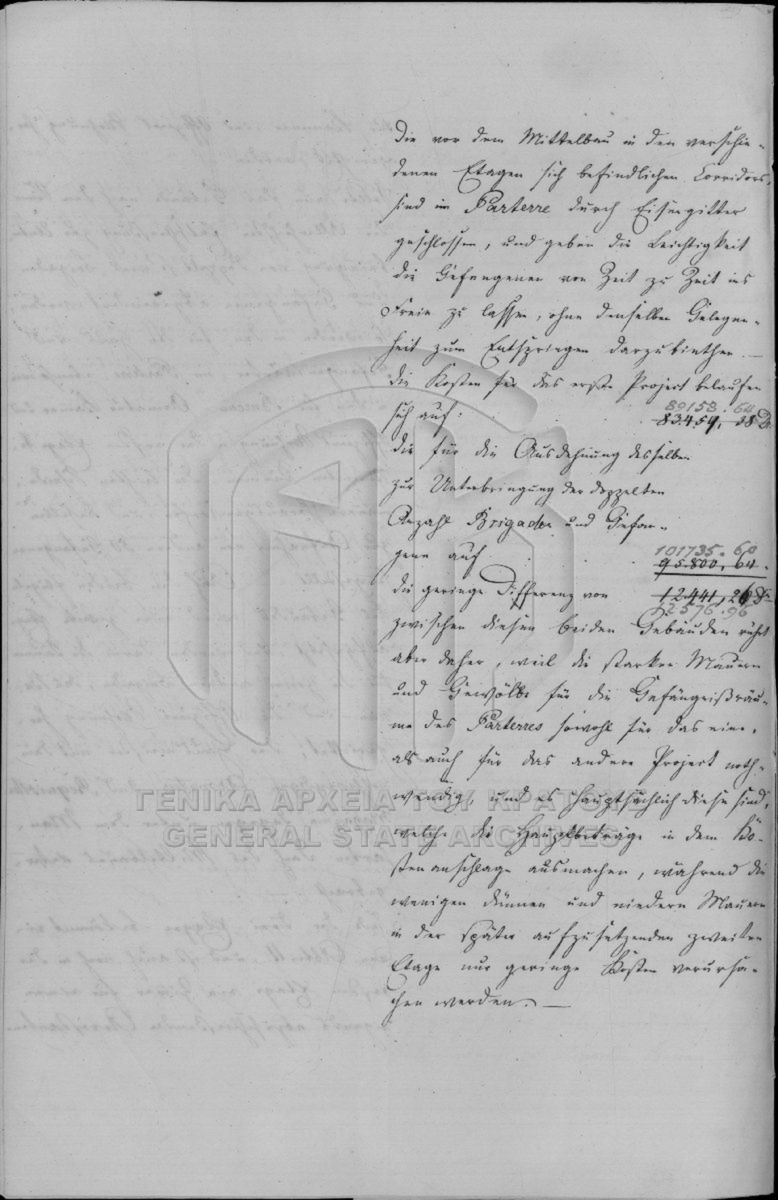 Die vor dem Mittelbau in den verschie-
denen Etagen sich befindlichen Corridors,
sind im Parterre durch Eisengitter
geschlossen, und geben die Leichtigkeit
die Gefangenen von Zeit zu Zeit ins
Freie zu lassen, ohne denselben Gelegen-
heit zum Entspringen darzubiethen. —
Die Kosten für das erste Project belaufen
89158. 64
sich auf: 83.459, 38 D.
die für die Ausdehnung desselben
zur Unterbringung der doppelten
Anzahl Brigaden und Gefan-
101735. 60
gene auf 95.800, 64.
die geringe Differenz von 12.441, 26 D.
12576. 96
zwischen diesen beiden Gebäuden rührt
aber daher, weil die starken Mauern
und Gewölbe für die Gefängnißräu-
me des Parterres sowohl für das eine,
als auch für das andere Project noth-
wendig, und es hauptsächlich diese sind,
welche die Hauptbeträge in dem Ko-
stenanschlage ausmachen, während die
wenigen dünnen und niedern Mauern
in der später aufzusetzenden zweiten
Etage nur geringe Kosten verursa-
chen werden. —
ΓΕΝΙΚΑ ΑΡΧΕΙΑ ΤΟΥ ΚΡΑΤΟΥΣ
GENERAL STATE ARCHIVES